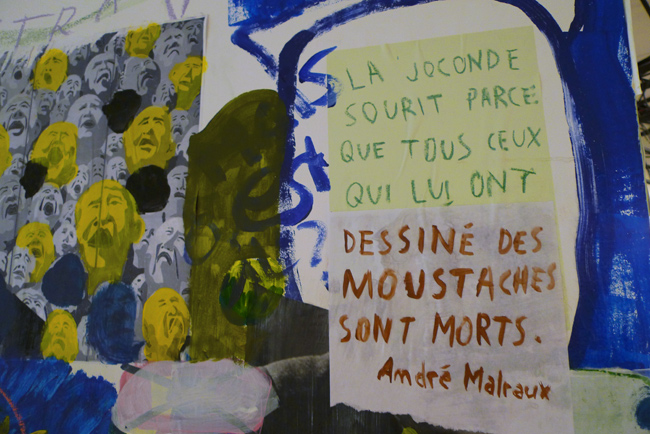 LA JOCONDE
SOURIT PARCE
QUE TOUS CEUX
QUI LUI ONT
DESSINÉ DES
MOUSTACHES
SONT MORTS.
André Malraux